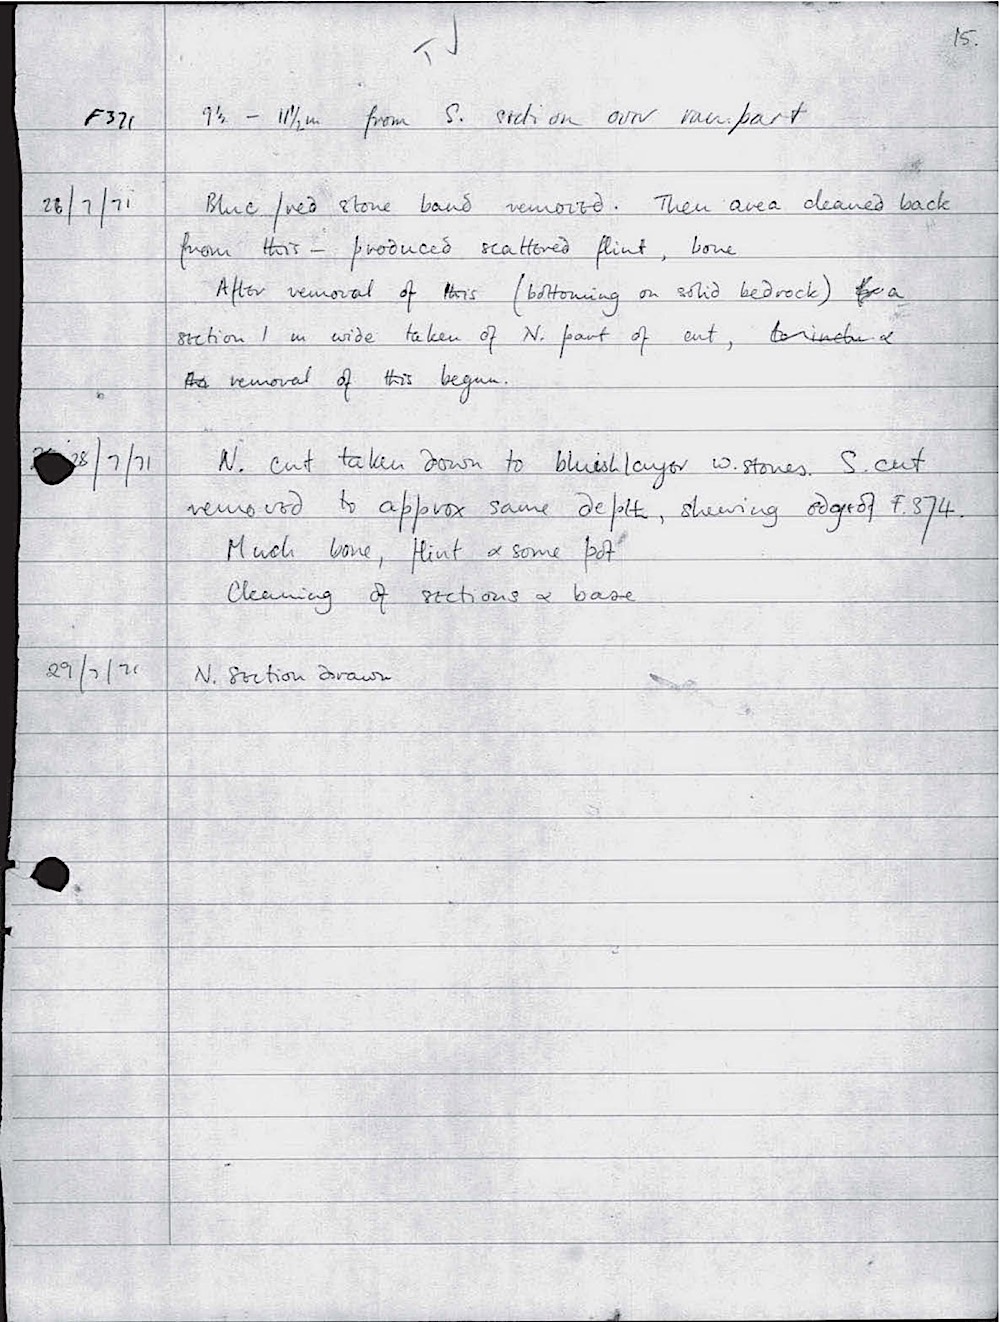 TJ
15.
F371 9½ - 11½m from S. section over rampart
28/7/71 Blue/red stone band removed. Then area cleaned back
from this - produced scattered flint, bone
After removal of this (bottoming on solid bedrock) a
section 1 m wide taken of N. part of cut, &
removal of this begun.
28/7/71 N. cut taken down to bluish layer w. stones. S. cut
removed to approx same depth, shewing edge of F.374.
Much bone, flint & some pot
Cleaning of sections & base
29/7/71 N. Section drawn